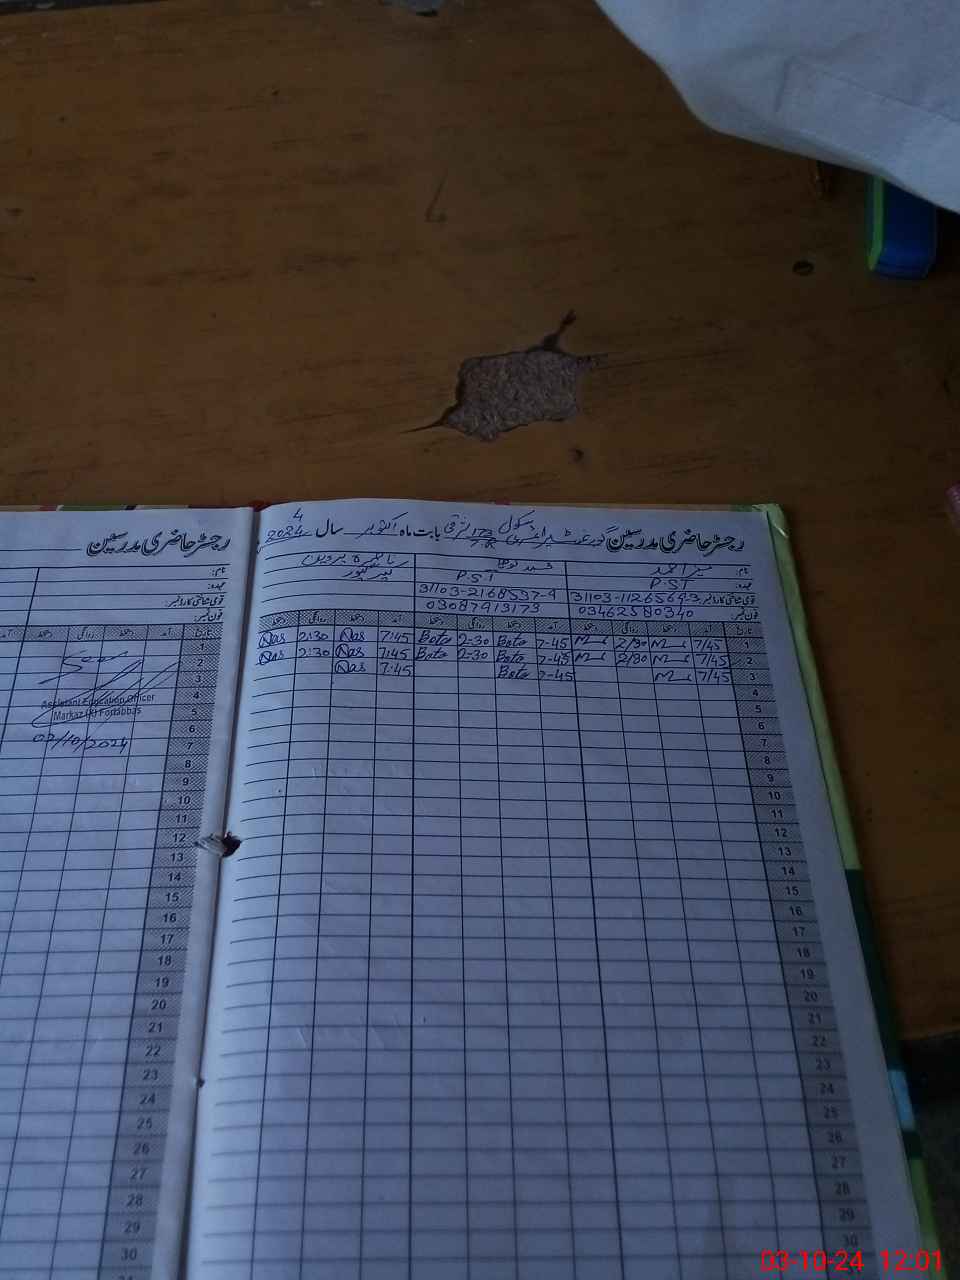 رجسٹر حاضری مدرسین
سکول
4
رجسٹر حاضری مدرسین گورنمنٹ 173 7R بابت ماہ اکتوبر سال 2024
نام:
ناصرہ پروین
عہدہ:
P.S.T
P.S.T
قومی شناختی کارڈ نمبر:
31103-1126564-3
31103-2168537-4
فون نمبر:
03462580340
03087913173
تاریخ آمد دستخط روانگی دستخط آمد دستخط روانگی دستخط آمد دستخط روانگی دستخط
1 7/45 2/30 7-45 Boto 2-30 Boto 7:45 Nas 2:30 Nas
2 7/45 2/30 7-45 Boto 2-30 Boto 7:45 Nas 2:30 Nas
3 7/45 7-45 Boto 7:45 Nas
4
5
6
7
8
9
10
11
12
13
14
15
16
17
18
19
20
21
22
23
24
25
26
27
28
29
30
نام:
عہدہ:
قومی شناختی کارڈ نمبر:
فون نمبر:
تاریخ آمد دستخط روانگی دستخط آمد
1
2
See
3
4
Assistant Education Officer
5
Markaz Fortabbas
6
7
02/10/2024
8
9
10
11
12
13
14
15
16
17
18
19
20
21
22
23
24
25
26
27
28
29
30
03-10-24 12:01